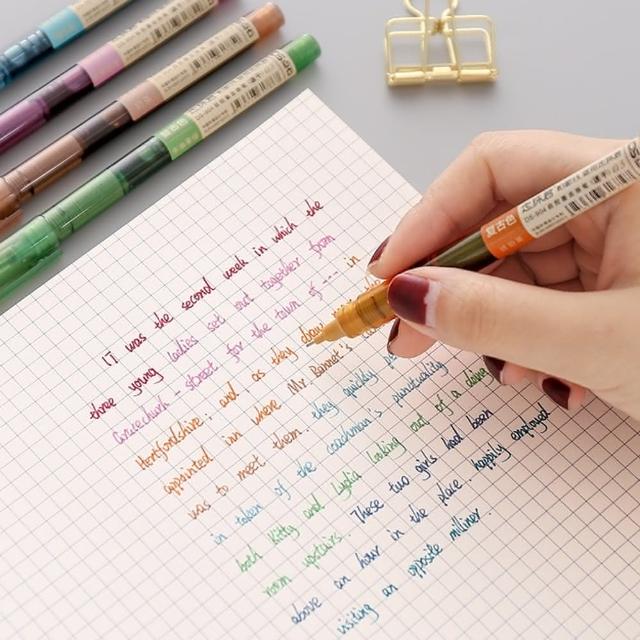 IT was the second week in which the
three young ladies set out together from
Gracechurch - street for the town of --- in
Hertfordshire; and as they
appointed inn where Mr. Bannet's
was to meet them. they quickly
in token of the coachman's punctuality
both Kitty and Lydia looking out of a
room upstairs. These two girls had been
above an hour in the place. happily employed
visiting an opposite milliner.
复古色